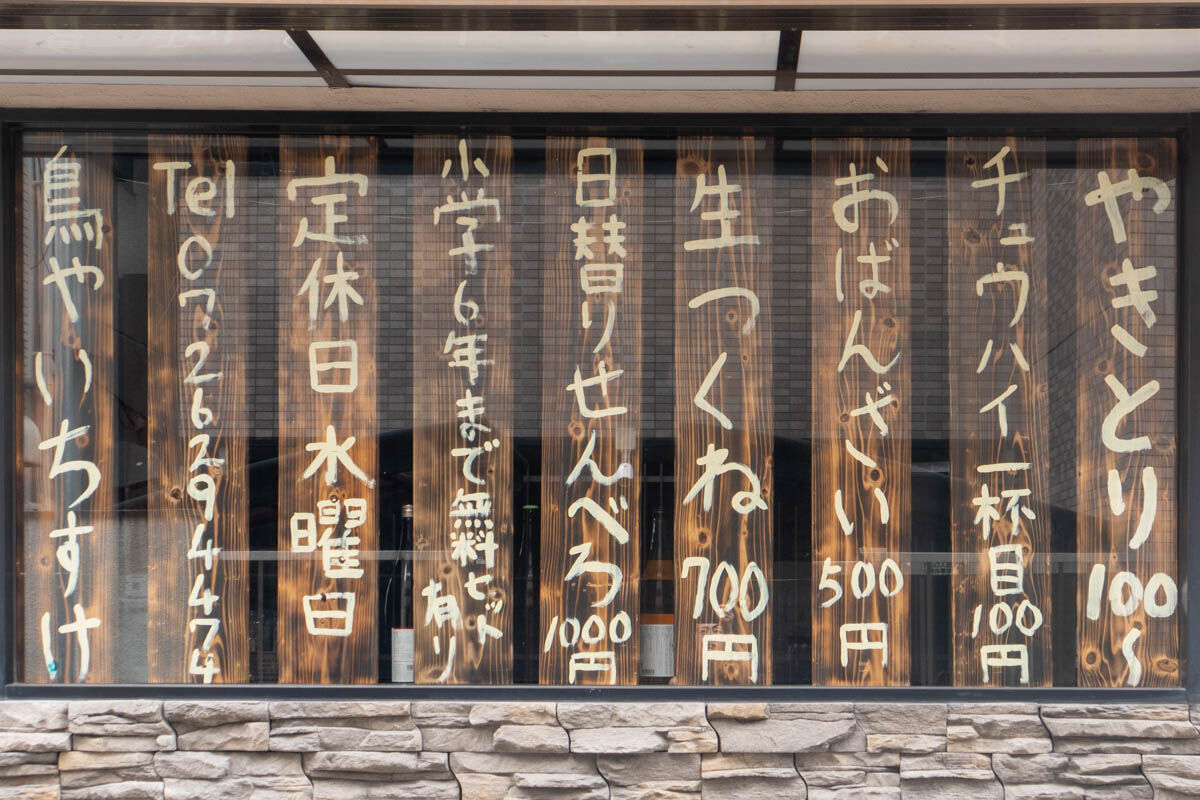 やきとり100〜
チュウハイ一杯目100円
おばんざい500円
生つくね700円
日替りせんべろ1000円
小学6年まで無料セット有り
定休日水曜日
Tel0726294474
鳥やいちすけ